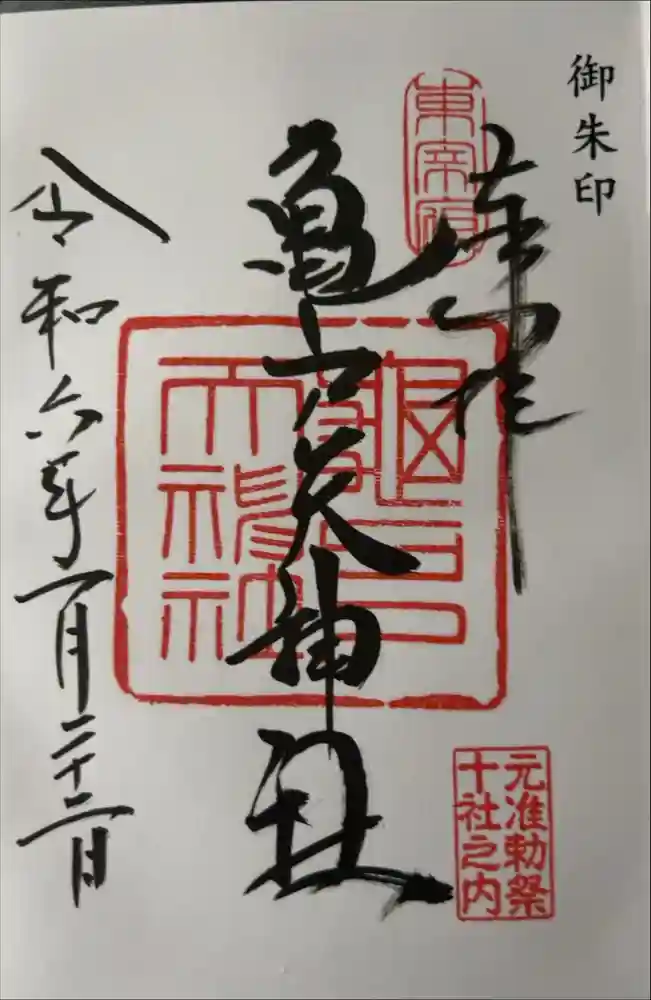 御朱印
奉拝
東宰府
亀戸天神社
亀戸
天神社
元准勅祭
十社之内
令和六年一月二十二日